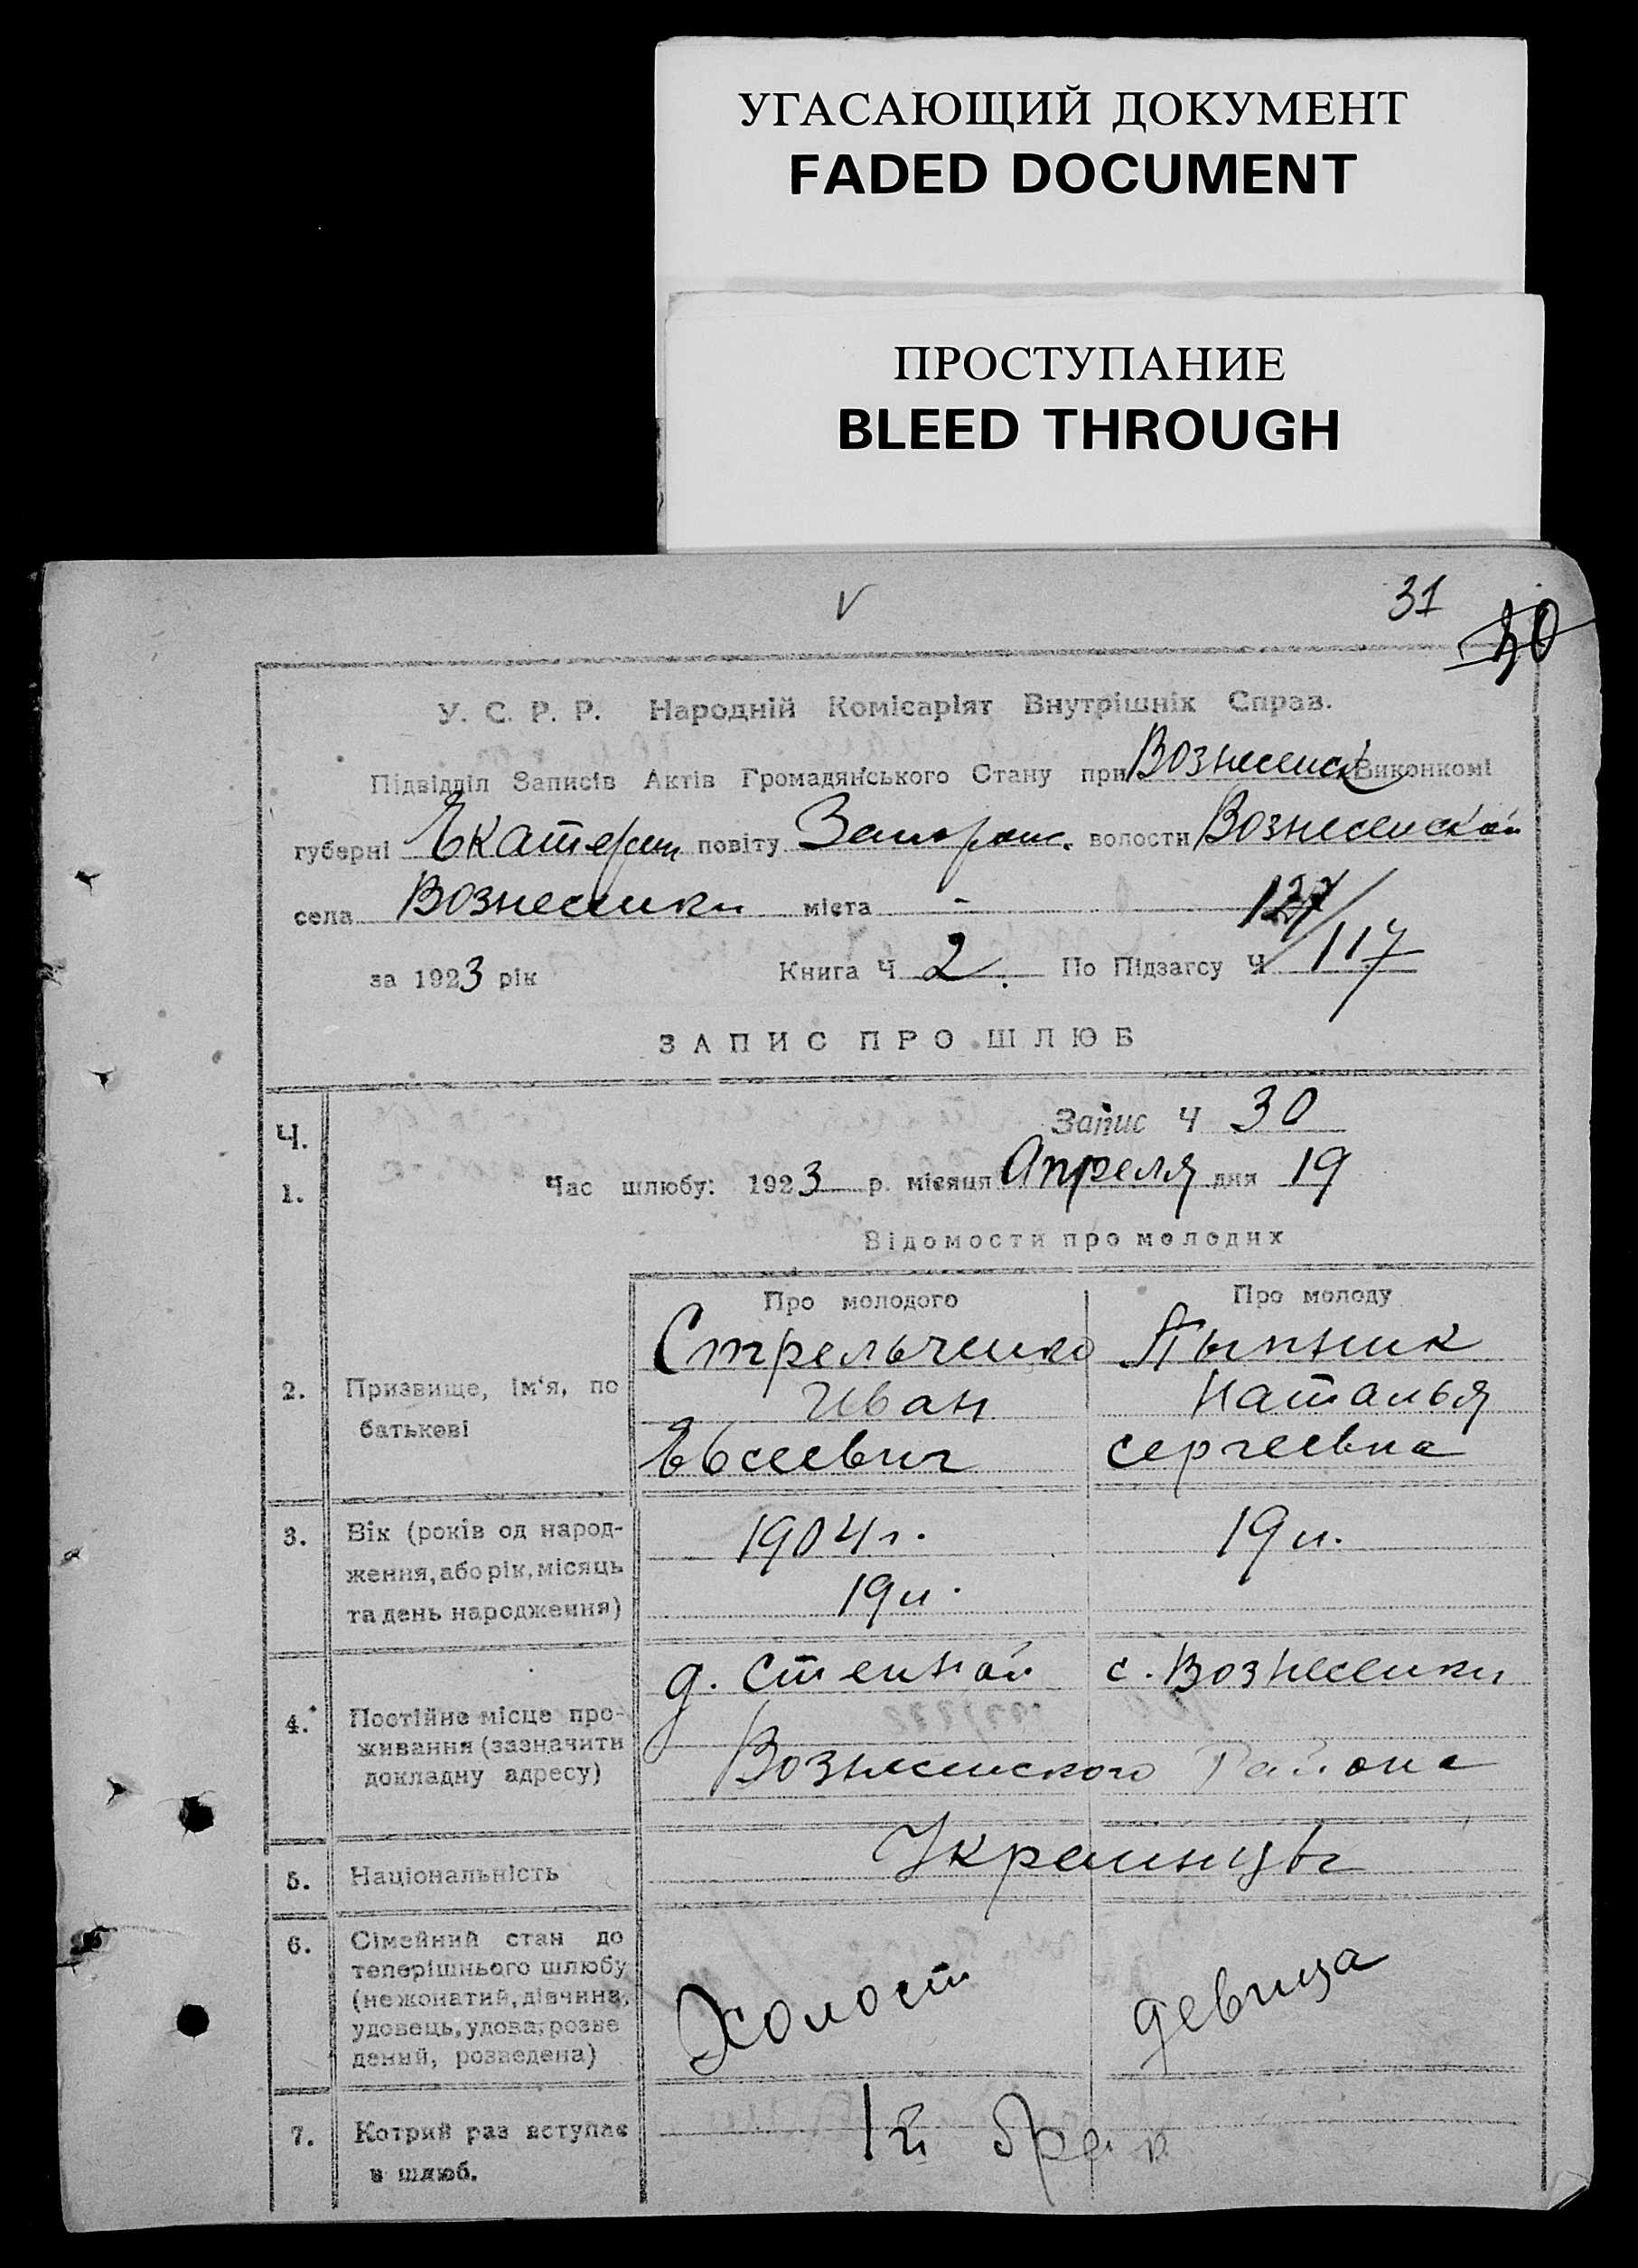 УГАСАЮЩИЙ ДОКУМЕНТ
FADED DOCUMENT
ПРОСТУПАНИЕ
BLEED THROUGH
V 31 30
У. С. Р. Р. Народній Комісаріят Внутрішніх Справ.
Підвідділ Записів Актів Громадянського Стану при Вознесенск Виконкомі
губерні Екатерин повіту Запорож. волости Вознесенской
села Вознесенки міста - 127/
за 1923 рік Книга Ч 2. По Підзагсу Ч 117
ЗАПИС ПРО ШЛЮБ
Ч. Запис Ч 30
1. Час шлюбу: 1923 р. місяця Апреля дня 19
Відомости про молодих
Про молодого Про молоду
Стрельченко
2. Призвище, ім'я, по Иван Наталья
батькові Евсеевич Сергеевна
3. Вік (років од народ- 1904 г. 19 л.
ження, або рік, місяць
та день народження) 19 л.
д. Степной с. Вознесенки
4. Постійне місце про-
живання (зазначити Вознесенского Района
докладну адресу)
5. Національність Украинцы
6. Сімейний стан до
теперішнього шлюбу
(нежонатий, дівчина, Холост девица
удовець, удова, розве
дений, розведена)
7. Котрий раз вступає 1й брак
в шлюб.